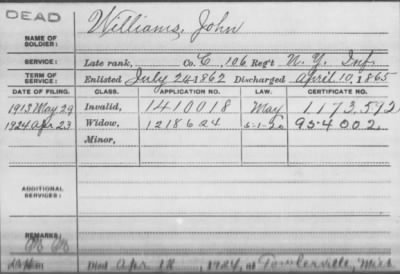 DEAD
NAME OF SOLDIER: Williams, John
SERVICE: Late rank, Co. C, 106 Reg't N. Y. Inf.
TERM OF SERVICE: Enlisted July 24 1862 Discharged April 10, 1865
DATE OF FILING. CLASS. APPLICATION NO. LAW. CERTIFICATE NO.
1913 May 29 Invalid, 1410018 May 1173592
1924 Apr 23 Widow, 1218624 5-1-20 954002
Minor,
ADDITIONAL SERVICES:
REMARKS:
Died Apr 18, 1924, at Fowlerville, Mich